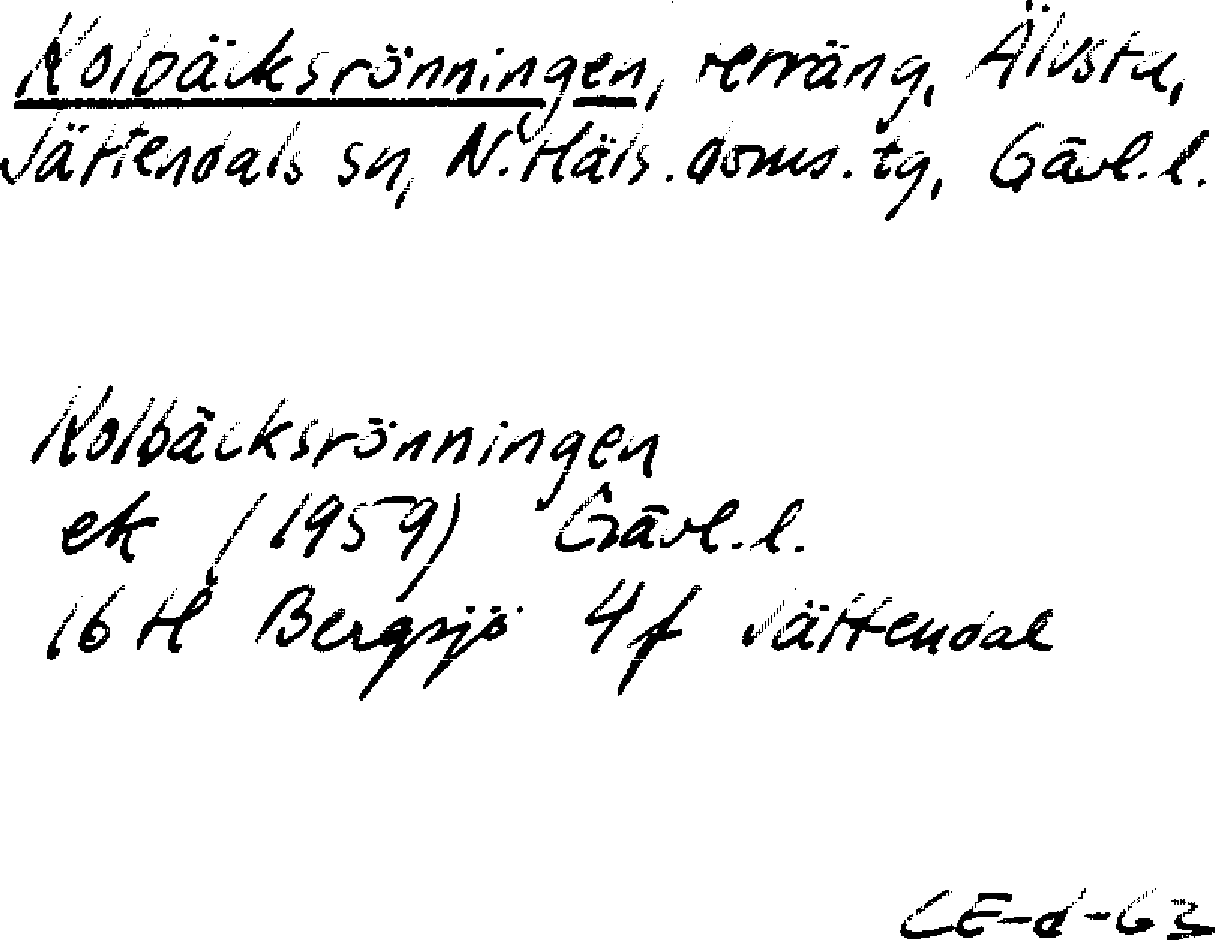 Kolbäcksrönningen, terräng, Älvsta,
Jättendals sn, N. Häls. doms. tg, Gävl. l.
Kolbäcksrönningen
ek (1959) Gävl. l.
16 H Bergsjö 4 f Jättendal
CE-d-63